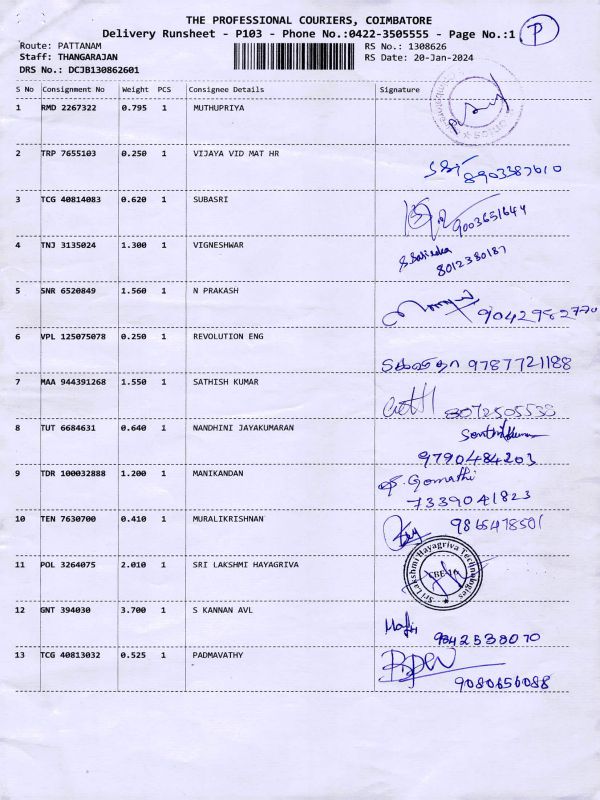 THE PROFESSIONAL COURIERS, COIMBATORE
Delivery Runsheet - P103 - Phone No.:0422-3505555 - Page No.:1 P
Route: PATTANAM RS No.: 1308626
Staff: THANGARAJAN RS Date: 20-Jan-2024
DRS No.: DCJB130862601
S No Consignment No Weight PCS Consignee Details Signature
1 RMD 2267322 0.795 1 MUTHUPRIYA
2 TRP 7655103 0.250 1 VIJAYA VID MAT HR
8903387610
3 TCG 40814083 0.620 1 SUBASRI
9003651644
4 TNJ 3135024 1.300 1 VIGNESHWAR
8012380187
5 SNR 6520849 1.560 1 N PRAKASH
9042982770
6 VPL 125075078 0.250 1 REVOLUTION ENG
9787721188
7 MAA 944391268 1.550 1 SATHISH KUMAR
8072505538
8 TUT 6684631 0.640 1 NANDHINI JAYAKUMARAN
9790484203
9 TDR 100032888 1.200 1 MANIKANDAN
Gomathi
7339041823
10 TEN 7630700 0.410 1 MURALIKRISHNAN
9865478501
11 POL 3264075 2.010 1 SRI LAKSHMI HAYAGRIVA
Sri Lakshmi Hayagriva Technologies
12 GNT 394030 3.700 1 S KANNAN AVL
9842538070
13 TCG 40813032 0.525 1 PADMAVATHY
9080656088